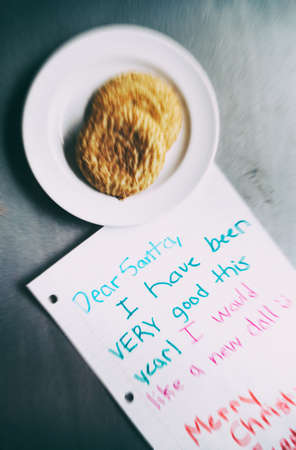 Dear Santa,
I have been
VERY good this
year! I would
like a new doll :)
Merry